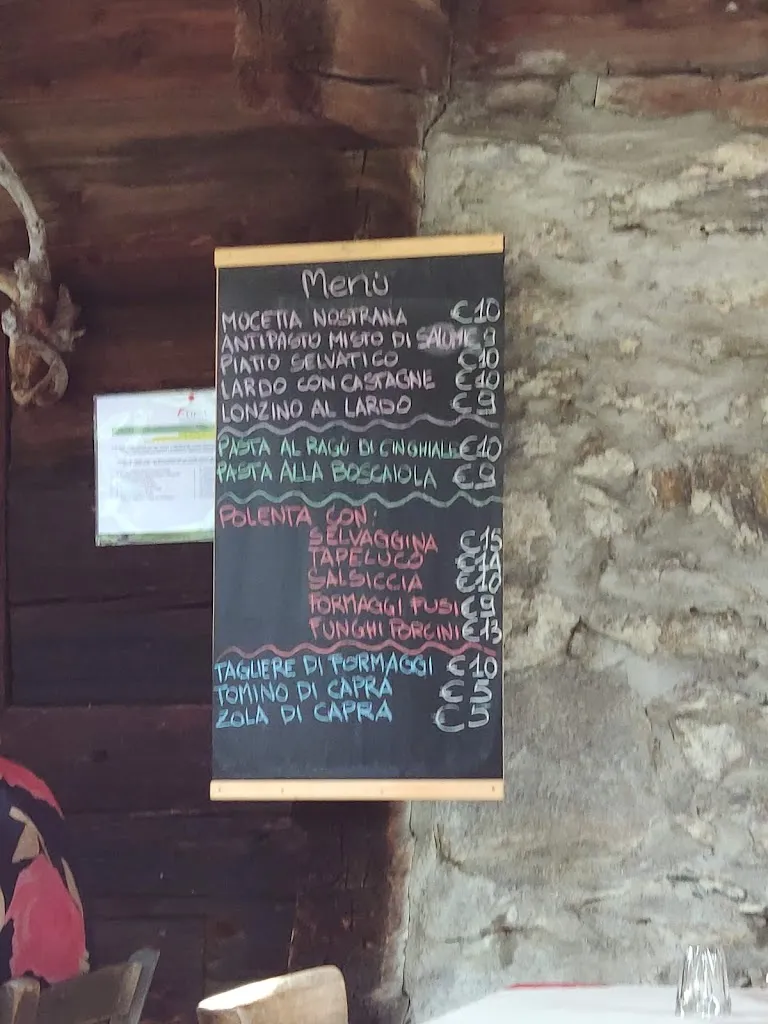 Menù
MOCETTA NOSTRANA €10
ANTIPASTO MISTO DI SALUMI € 9
PIATTO SELVATICO €10
LARDO CON CASTAGNE €10
LONZINO AL LARDO € 9
PASTA AL RAGÙ DI CINGHIALE €10
PASTA ALLA BOSCAIOLA € 9
POLENTA CON:
SELVAGGINA €15
TAPELUCO €14
SALSICCIA €10
FORMAGGI FUSI € 9
FUNGHI PORCINI €13
TAGLIERE DI FORMAGGI €10
TOMINO DI CAPRA € 5
ZOLA DI CAPRA € 5